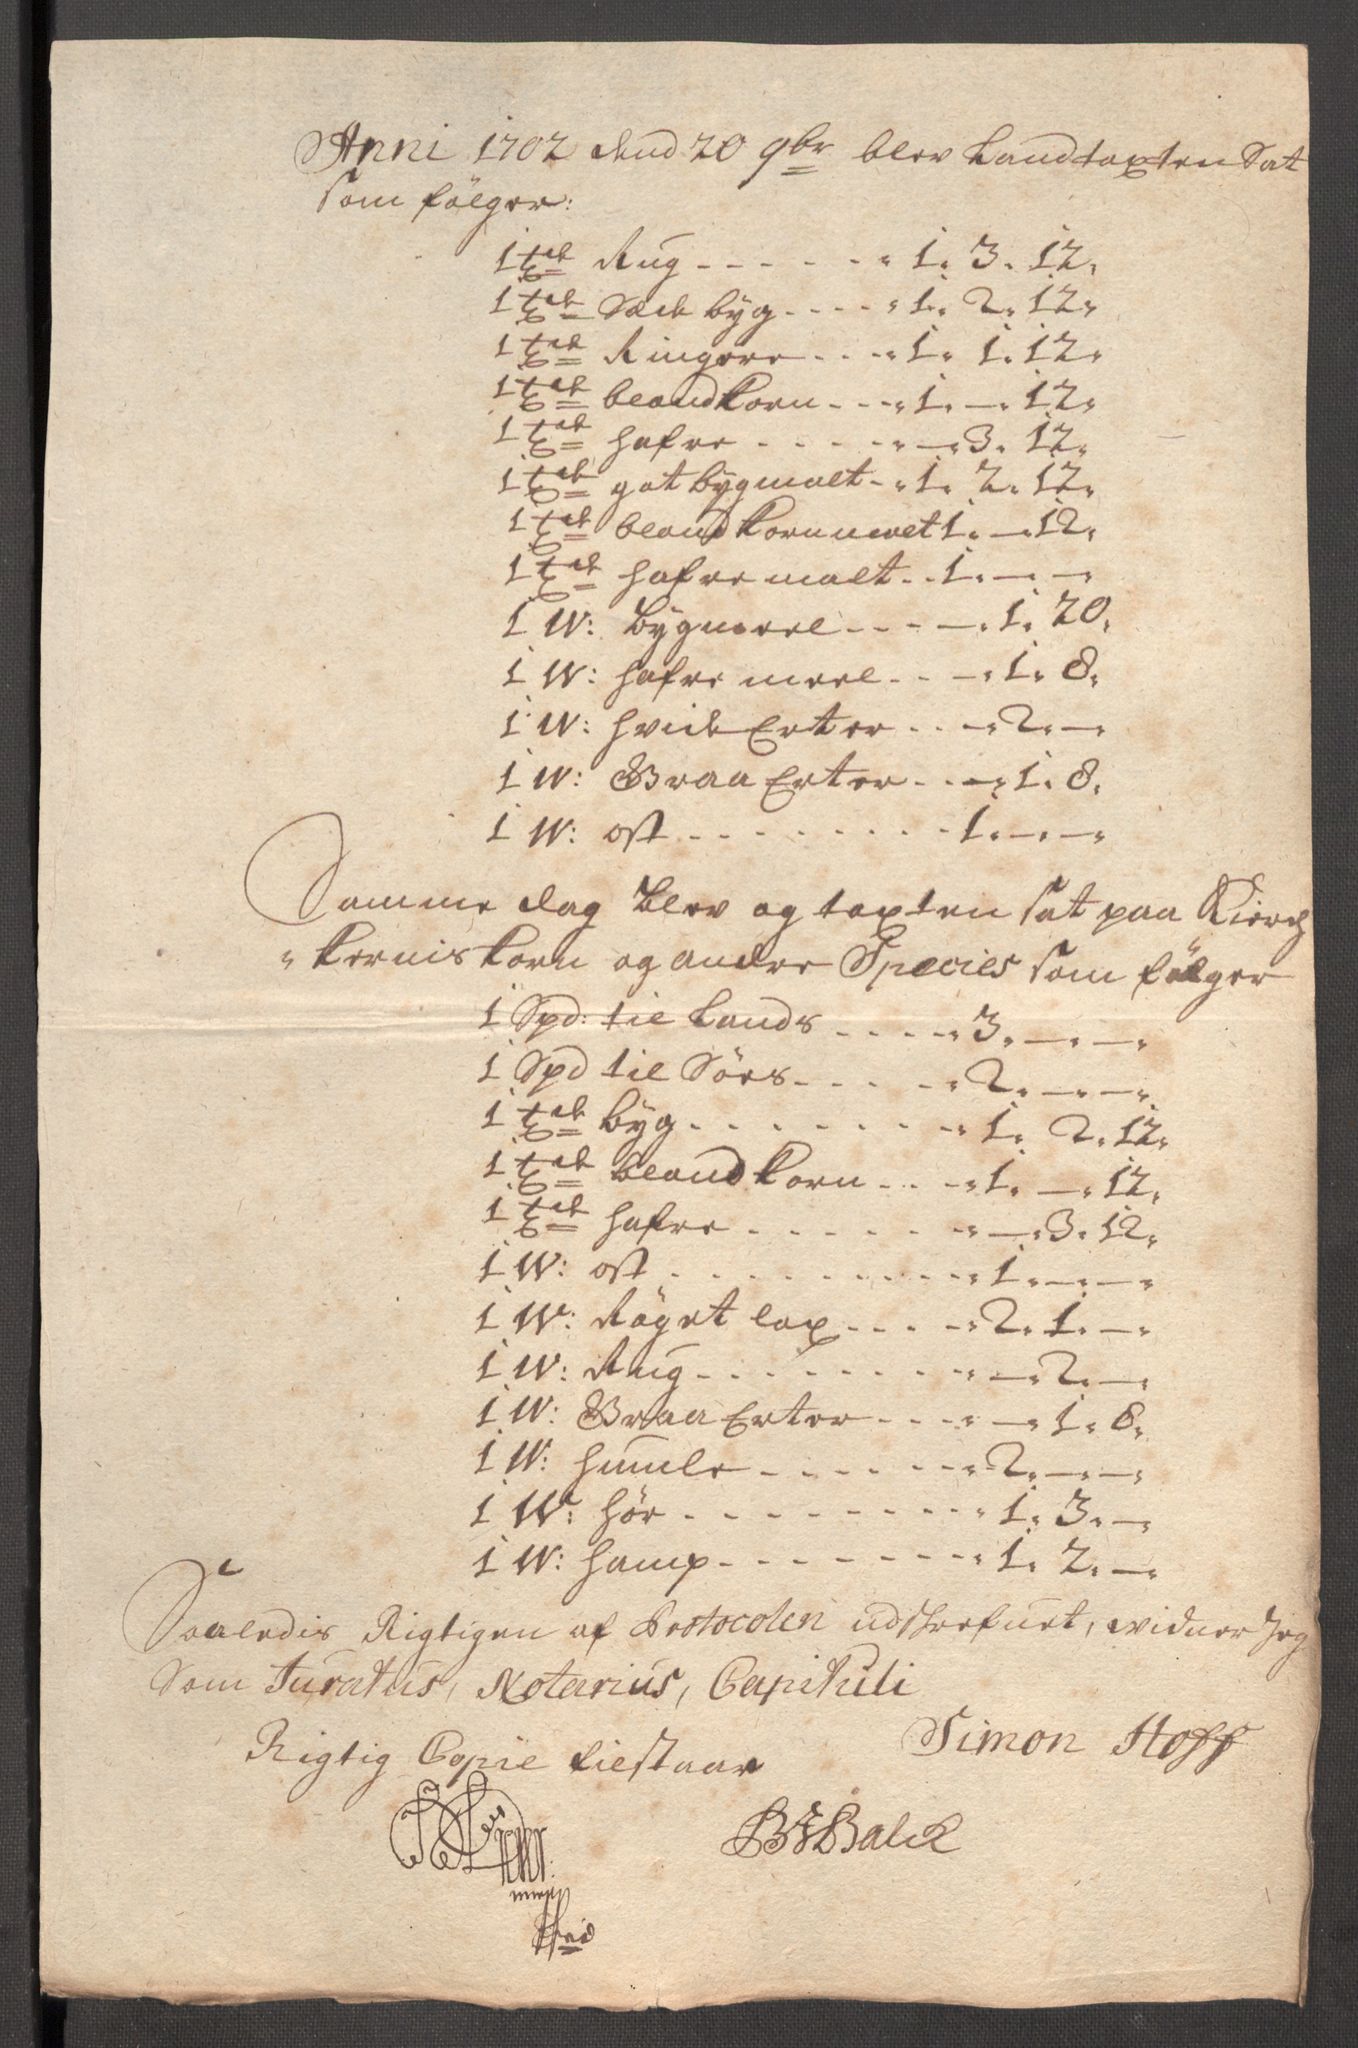 Anni 1702 dend 20 9br blev Landtaxten Sat
som følger:
1 tde Rug - - - - - 1. 3. 12.
1 tde Sæde byg - - - - 1. 2. 12.
1 tde Ringere - - - 1. 1. 12.
1 tde blandkorn - - - 1. — 12.
1 tde hafre - - - - — 3. 12.
1 tde got bygmalt - 1. 2. 12.
1 tde bland korn malt 1. — 12.
1 tde hafre malt - - 1. — —
1 W: bygmeel - - - —. 1. 20.
1 W: hafre meel - - —. 1. 8.
1 W: hvide Erter - - —. 2. —
1 W: Graa Erter - - —. 1. 8.
1 W: ost - - - - - - - - 1. — —
Samme dag blev og taxten sat paa Kierch
kornis korn og andre Species som følger
1 Spd: til Lands - - - - 3. — —
1 Spd til Søes - - - - 2. — —
1 tde byg - - - - - - - 1. 2. 12.
1 tde bland korn - - - 1. — 12.
1 tde hafre - - - - - - —. 3. 12.
1 W: ost - - - - - - - - 1. — —
1 W: Røget lax - - - - 2. 1. —
1 W: Rug - - - - - - - —. 2. —
1 W: Graa Erter - - - —. 1. 8.
1 W: humle - - - - - 2. — —
1 W: hør - - - - - - - - 1. 3. —
1 W: hamp - - - - - - - 1. 2. —
Saaledis Rigtigen af Protocolen udskrefuet, widner Jeg
Som Juratus, Notarius, Capituli
Simon Hoff
Rigtig Copie tilstaar
Balck